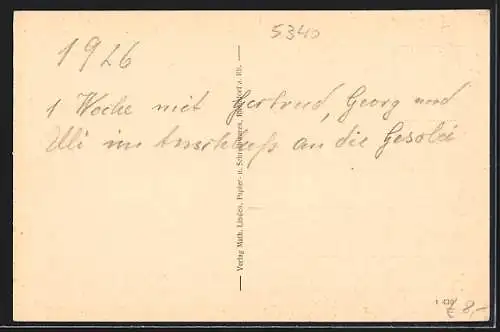 5340
1926
1 Woche mit Gertrud, Georg und
Illi im Anschluß an die Gesolei
Verlag Math. Linden, Papier- u. Schreibwaren, a. Rh.
1 430
€ 8,-